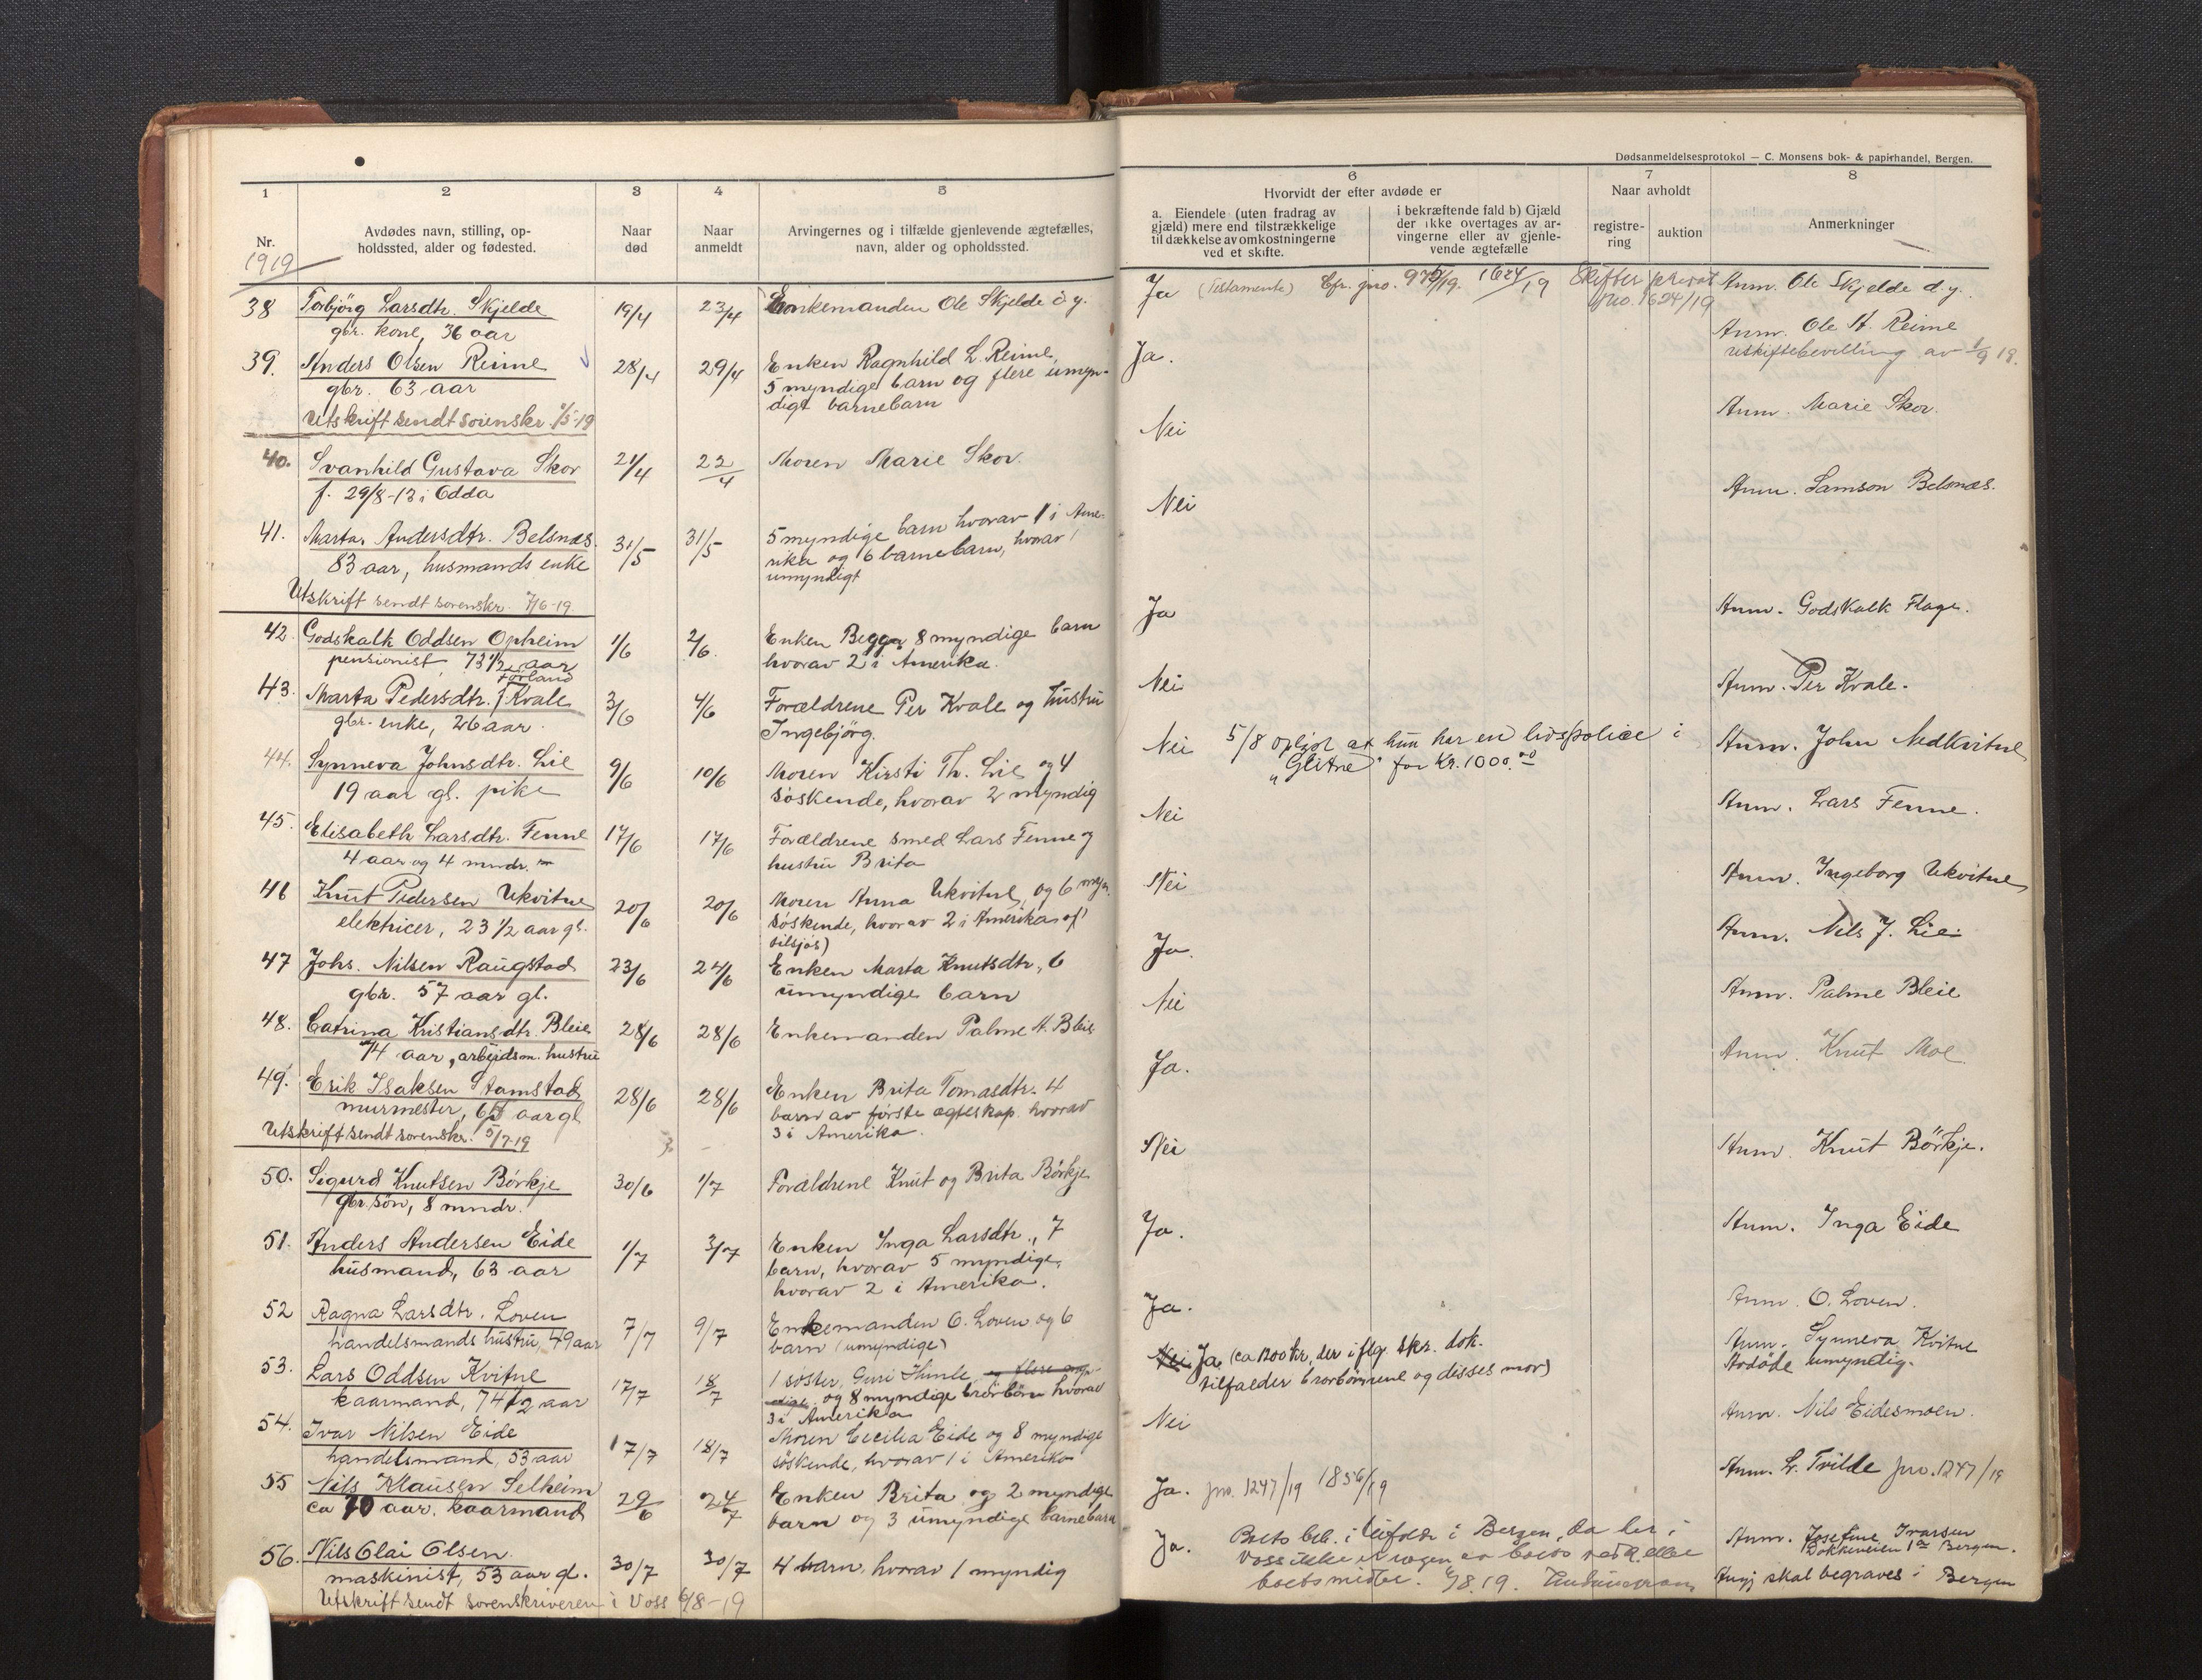 Dødsanmeldelsesprotokol — C. Monsens bok- & papirhandel, Bergen.
1 2 3 4 5
Nr.
Avdødes navn, stilling, op-
holdssted, alder og fødested.
Naar
død
Naar
anmeldt
Arvingernes og i tilfælde gjenlevende ægtefælles,
navn, alder og opholdssted.
6 7 8
Hvorvidt der efter avdøde er
a. Eiendele (uten fradrag av
gjæld) mere end tilstrækkelige
til dækkelse av omkostningerne
ved et skifte.
i bekræftende fald b) Gjæld
der ikke overtages av ar-
vingerne eller av gjenle-
vende ægtefælle
Naar avholdt
registre-
ring
auktion
Anmerkninger
1919
38 Torbjörg Larsdtr. Skjelde 19/4 23/4 Enkemanden Ole Skjelde d.y.
gbr. kone, 36 aar
39. Anders Olsen Reime 28/4 29/4 Enken Ragnhild L. Reime,
gbr. 63 aar 5 myndige barn og flere umyn-
digt barnebarn
Utskrift sendt sorenskr. 1/5-19
40. Svanhild Gustava Skor 21/4 22/4 Moren Marie Skor.
f. 29/8-13 i Odda
41. Marta Andersdtr. Belsnæs. 31/5 31/5 5 myndige barn hvorav 1 i Ame-
83 aar, husmands enke rika og 6 barnebarn, hvorav 1
umyndigt
Utskrift sendt sorenskr. 7/6-19
42. Godskalk Oddsen Opheim 1/6 2/6. Enken Begga, 8 myndige barn
pensionist, 73 1/2 aar hvorav 2 i Amerika.
43. Marta Pedersdtr. Förland / Kvale 3/6 4/6 Forældrene Per Kvale og hustru
gbr. enke, 26 aar. Ingebjörg.
44. Synneva Johnsdtr. Lie 9/6 10/6 Moren Kirsti Th. Lie og 4
19 aar gl. pike söskende, hvorav 2 myndig
45. Elisabeth Larsdtr. Fenne 17/6 17/6 Forældrene smed Lars Fenne og
4 aar og 4 mndr. hustru Brita
46 Knut Pedersen Ukvitne 20/6 20/6 Moren Anna Ukvitne, og 6 myn.
elektricer, 23 1/2 aar gl. söskende, hvorav 2 i Amerika
tilsjös)
47 Johs. Nilsen Raugstad 23/6 24/6 Enken Marta Knutsdtr., 6
gbr. 57 aar gl. umyndige barn
48. Catrina Kristiansdtr. Bleie 28/6 28/6 Enkemanden Palme A. Bleie
74 aar, arbeidsm. hustru
49. Erik Isaksen Stamstad 28/6 28/6 Enken Brita Tomasdtr. 4
murmester, aar gl barn av förste ægteskap. hvorav
3 i Amerika.
Utskrift sendt sorenskr. 5/7-19
50. Sigurd Knutsen Börkje 30/6 1/7 Forældrene Knut og Brita Börkje
gbr. sön, 8 mndr.
51. Anders Andersen Eide 1/7 3/7 Enken Inga Larsdtr., 7
husmand, 63 aar barn, hvorav 5 myndige,
hvorav 2 i Amerika.
52 Ragna Larsdtr. Loven 7/7 9/7 Enkemanden O. Loven og 6
handelsmands hustru, 49 aar barn (umyndige)
53. Lars Oddsen Kvitne 17/7 18/7 1 söster, Guri Humle, og flere myn-
kaarmand, 74 1/2 aar dige, og 8 myndige brorbörn hvorav
3 i Amerika
54. Ivar Nilsen Eide 17/7 18/7 Moren Cecilia Eide og 8 myndige
handelsmand, 53 aar söskende, hvorav 1 i Amerika
55 Nils Klausen Selheim 29/6 24/7 Enken Brita og 2 myndige
ca 70 aar. kaarmand barn og 3 umyndige barnebarn
56. Nils Olai Olsen. 30/7 30/7 4 barn, hvorav 1 myndig
maskinist, 53 aar gl.
Utskrift sendt sorenskriveren i Voss 6/8-19
Ja (Testamente) Cfr. jno. 975/19. 1624/19 Skifter privat Anm. Ole Skjelde d.y.
jno. 1624/19
Ja. Anm. Ole A. Reime
uskiftebevilling av 1/9 19.
Nei Anm. Marie Skor.
Nei Anm. Samson Belsnæs.
Ja Anm. Godskalk Flage.
Nei Anm. Per Kvale.
Nei 5/8 oplyst at hun har en livspolice i Anm. John Nedkvitne
"Gleitne" for Kr. 1000.00
Nei Anm. Lars Fenne.
Nei Anm. Ingeborg Ukvitne
Ja. Anm. Nils J. Lie.
Nei Anm. Palme Bleie
Ja. Anm. Knut Moe
Nei Anm. Knut Börkje.
Ja. Anm. Inga Eide
Ja. Anm. O. Loven.
Nei Ja (ca 1200 kr, der iflg. skr. dok. Anm. Synneva Kvitne
tilfalder brorbörnene og disses mor) Avdöde umyndig.
Nei Anm. Nils Eidesmoen.
Ja. jno. 1247/19 1856/19 Anm. L. Tvilde jno. 1247/19
Ja. Boets beh. i Bergen, da her i Anm. Josefine Ivarsen
Voss ikke er nogen av boets eller Dokkeveien 1 Bergen.
boets midler. 6/8.19. skal begraves i Bergen